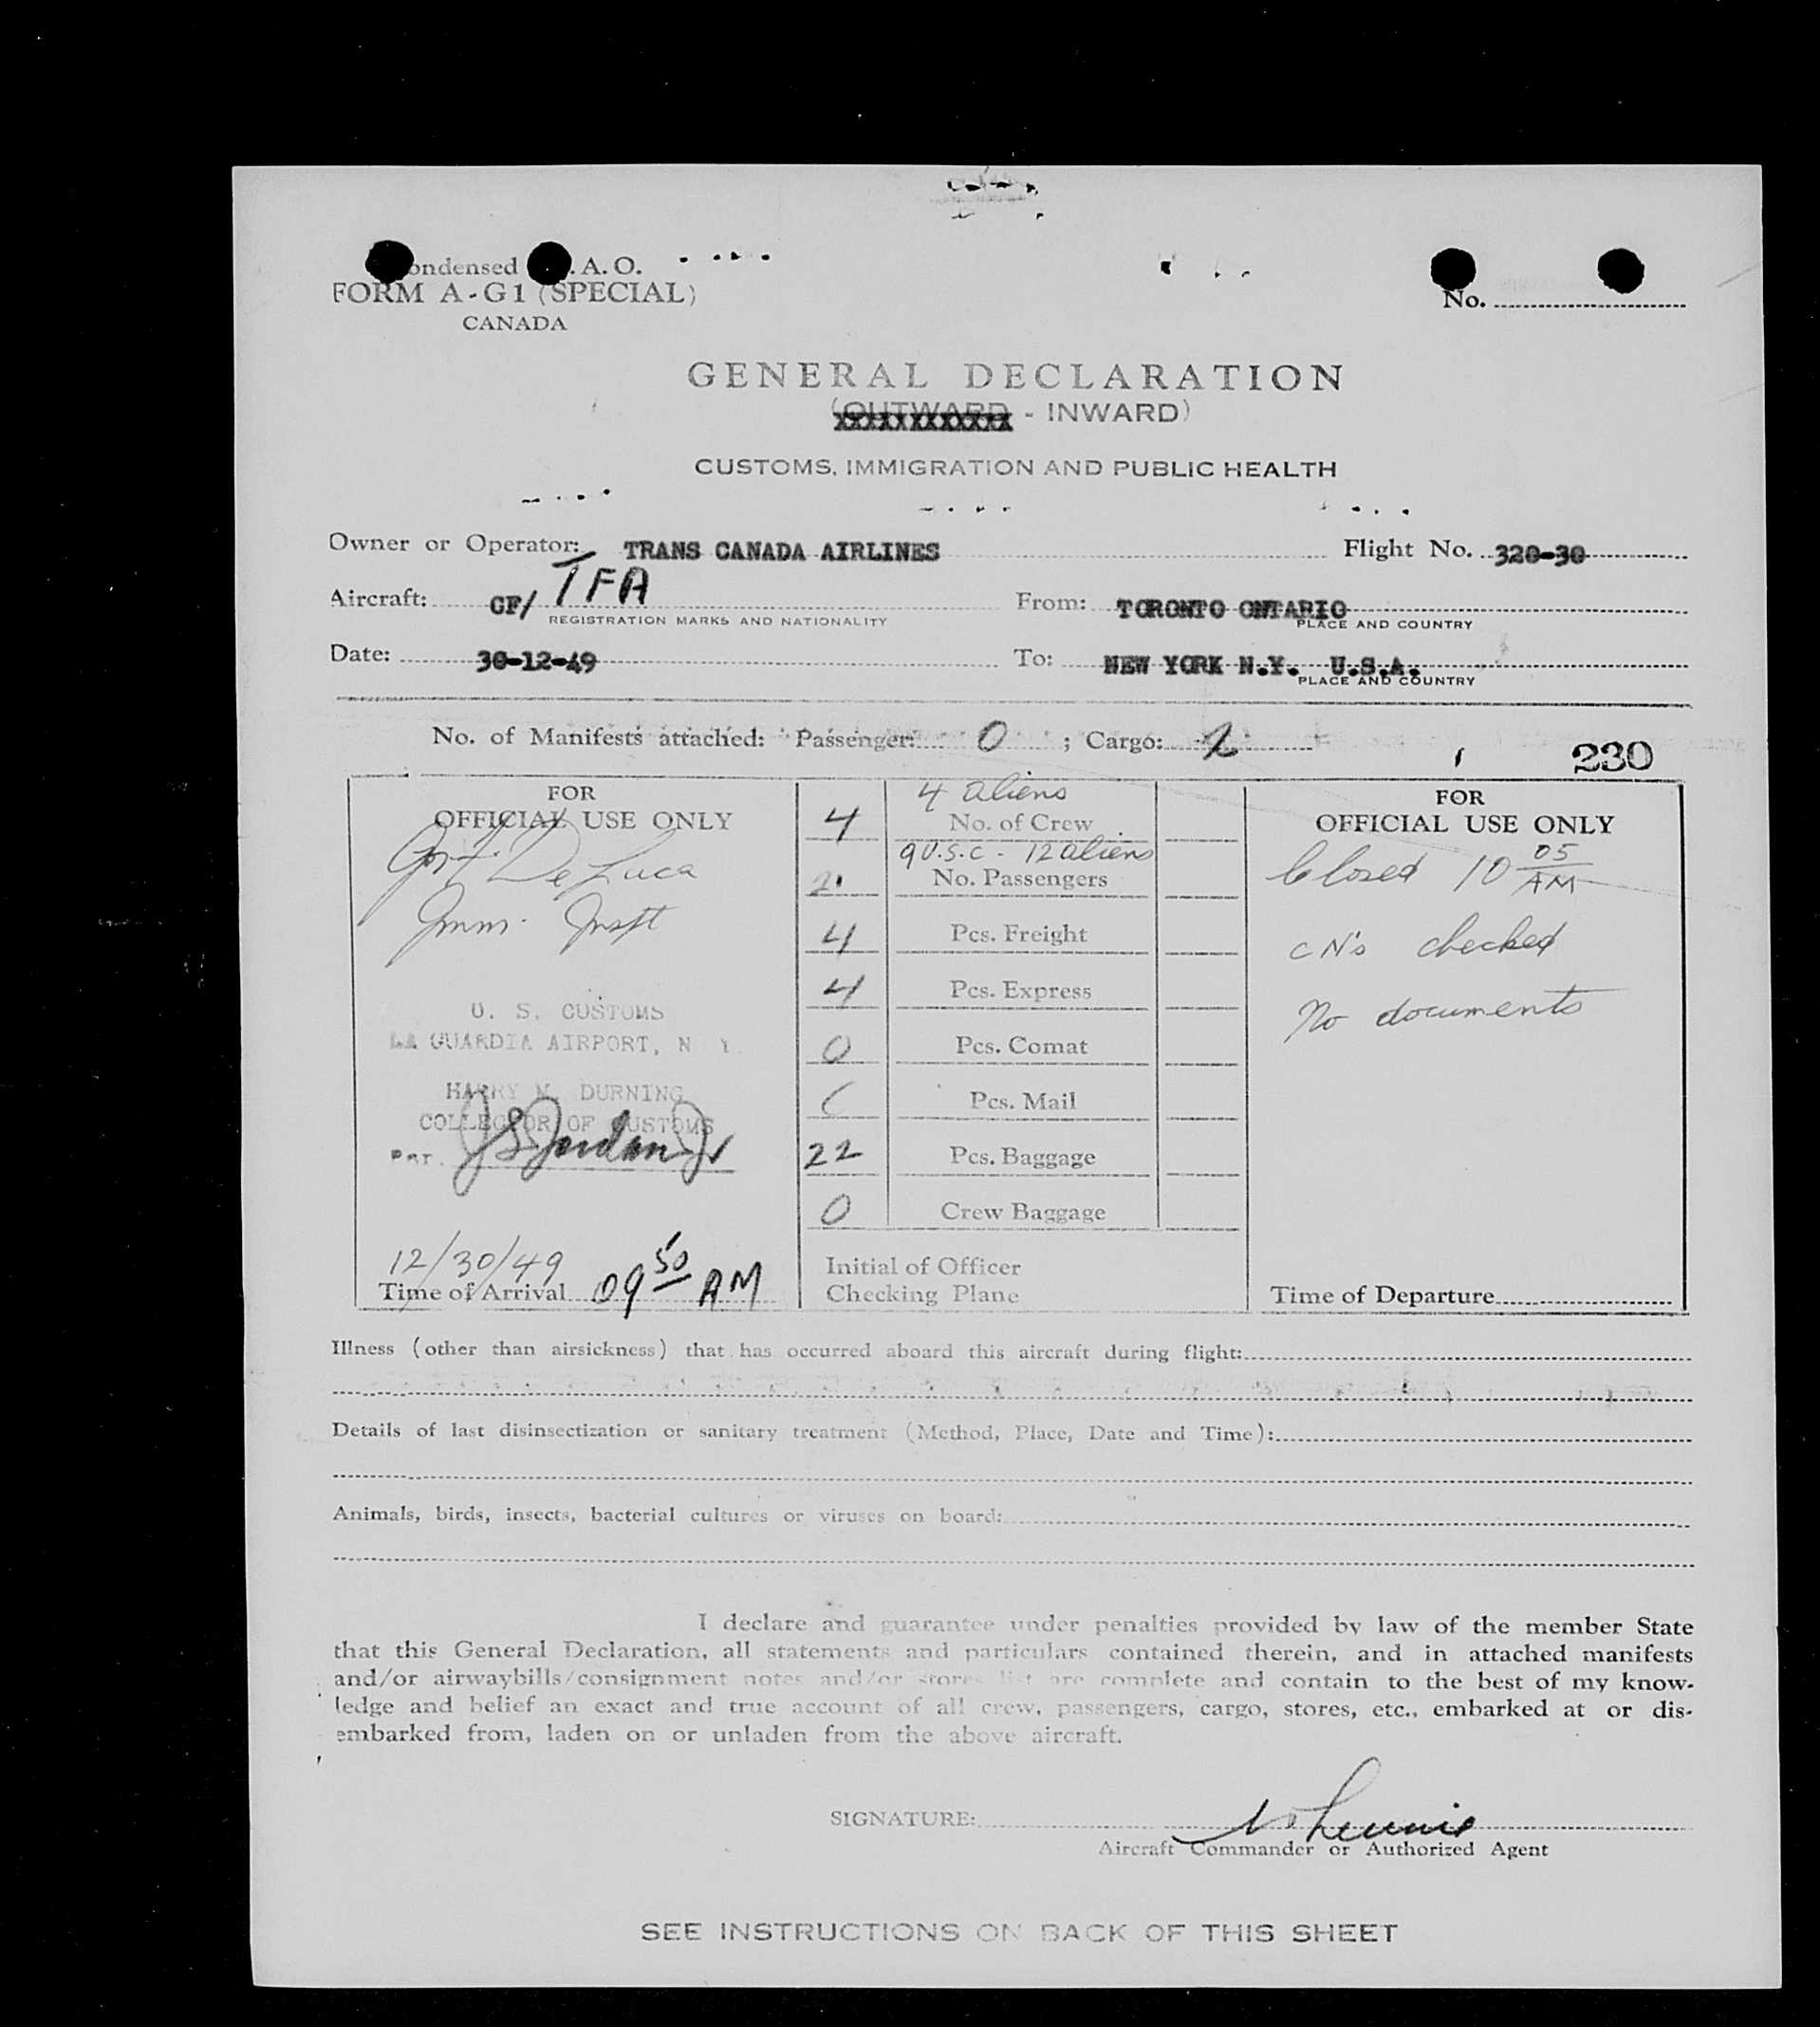 ondensed .A.O.
FORM A-G1 (SPECIAL)
CANADA
No.
GENERAL DECLARATION
(OUTWARD - INWARD)
CUSTOMS, IMMIGRATION AND PUBLIC HEALTH
Owner or Operator: TRANS CANADA AIRLINES Flight No. 320-30
Aircraft: CF/ TFA From: TORONTO ONTARIO
REGISTRATION MARKS AND NATIONALITY PLACE AND COUNTRY
Date: 30-12-49 To: NEW YORK N.Y. U.S.A.
PLACE AND COUNTRY
No. of Manifests attached: Passenger: 0 ; Cargo: 2
230
FOR
OFFICIAL USE ONLY
De Luca
Imm. Inspt
U. S. CUSTOMS
LA GUARDIA AIRPORT, N Y.
HARRY M. DURNING
COLLECTOR OF CUSTOMS
Per. J S Jordan Jr
12/30/49
Time of Arrival 09 50 AM
4 aliens
4 No. of Crew
9 U.S.C - 12 aliens
21 No. Passengers
4 Pcs. Freight
4 Pcs. Express
0 Pcs. Comat
Pcs. Mail
22 Pcs. Baggage
0 Crew Baggage
Initial of Officer
Checking Plane
FOR
OFFICIAL USE ONLY
Closed 10 05 AM
CN's checked
No documents
Time of Departure
Illness (other than airsickness) that has occurred aboard this aircraft during flight:
Details of last disinsectization or sanitary treatment (Method, Place, Date and Time):
Animals, birds, insects, bacterial cultures or viruses on board:
I declare and guarantee under penalties provided by law of the member State
that this General Declaration, all statements and particulars contained therein, and in attached manifests
and/or airwaybills/consignment notes and/or stores list are complete and contain to the best of my know-
ledge and belief an exact and true account of all crew, passengers, cargo, stores, etc., embarked at or dis-
embarked from, laden on or unladen from the above aircraft.
SIGNATURE:
Aircraft Commander or Authorized Agent
SEE INSTRUCTIONS ON BACK OF THIS SHEET